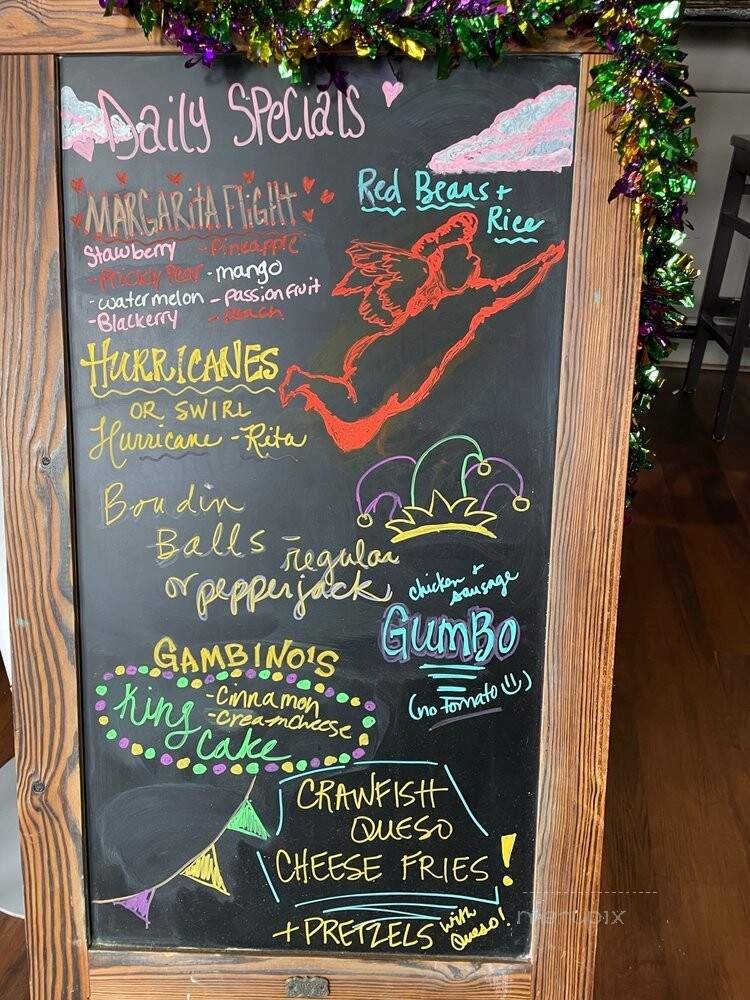 Daily Specials
MARGARITA FlIGHt
Stawberry - Pineapple
- Prickly Pear - mango
- watermelon - Passionfruit
- Blackerry - Peach
Red Beans +
Rice
HURRICANES
OR SWIRL
Hurricane - Rita
Boudin
Balls regular
or pepperjack
chicken +
sausage
GumBo
(no tomato)
GAMBINO'S
King
- Cinnamon
- Creamcheese
Cake
CRAWFISH
QUESO
CHEESE FRIES!
+ PRETZELS with
Queso!
menupix